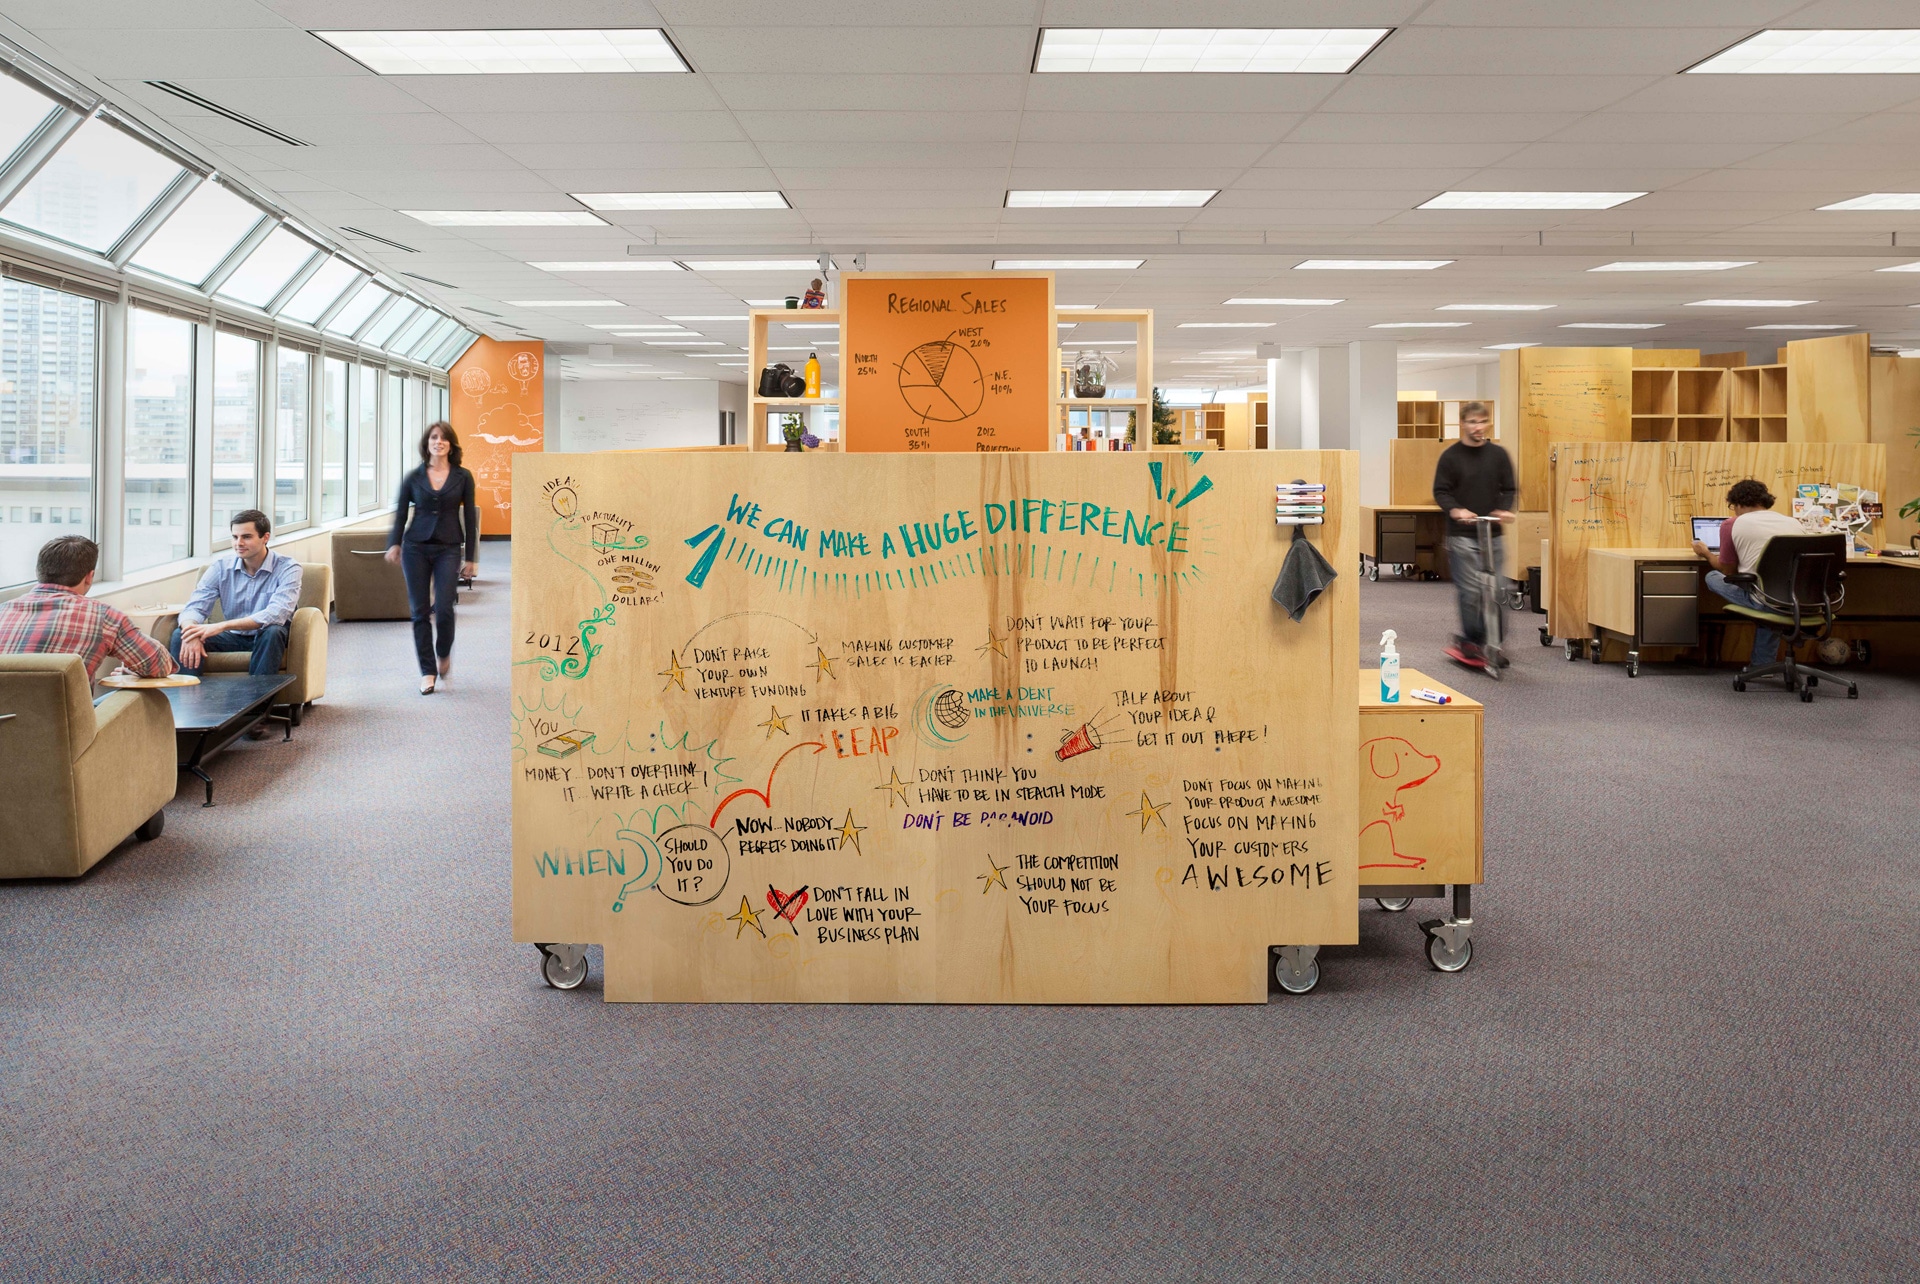 REGIONAL SALES
WEST
20%
NORTH
25%
N.E.
40%
SOUTH
35%
2012
PROJECTIONS
IDEA
TO ACTUALITY
ONE MILLION
DOLLARS!
2012
WE CAN MAKE A HUGE DIFFERENCE
DON'T RAISE
YOUR OWN
VENTURE FUNDING
MAKING CUSTOMER
SALES IS EASIER
DON'T WAIT FOR YOUR
PRODUCT TO BE PERFECT
TO LAUNCH
YOU
IT TAKES A BIG
LEAP
MAKE A DENT
IN THE UNIVERSE
TALK ABOUT
YOUR IDEA &
GET IT OUT THERE!
MONEY... DON'T OVERTHINK
IT... WRITE A CHECK!
DON'T THINK YOU
HAVE TO BE IN STEALTH MODE
DON'T BE PARANOID
DON'T FOCUS ON MAKING
YOUR PRODUCT AWESOME
FOCUS ON MAKING
YOUR CUSTOMERS
AWESOME
WHEN?
SHOULD
YOU DO
IT?
NOW... NOBODY
REGRETS DOING IT
THE COMPETITION
SHOULD NOT BE
YOUR FOCUS
DON'T FALL IN
LOVE WITH YOUR
BUSINESS PLAN